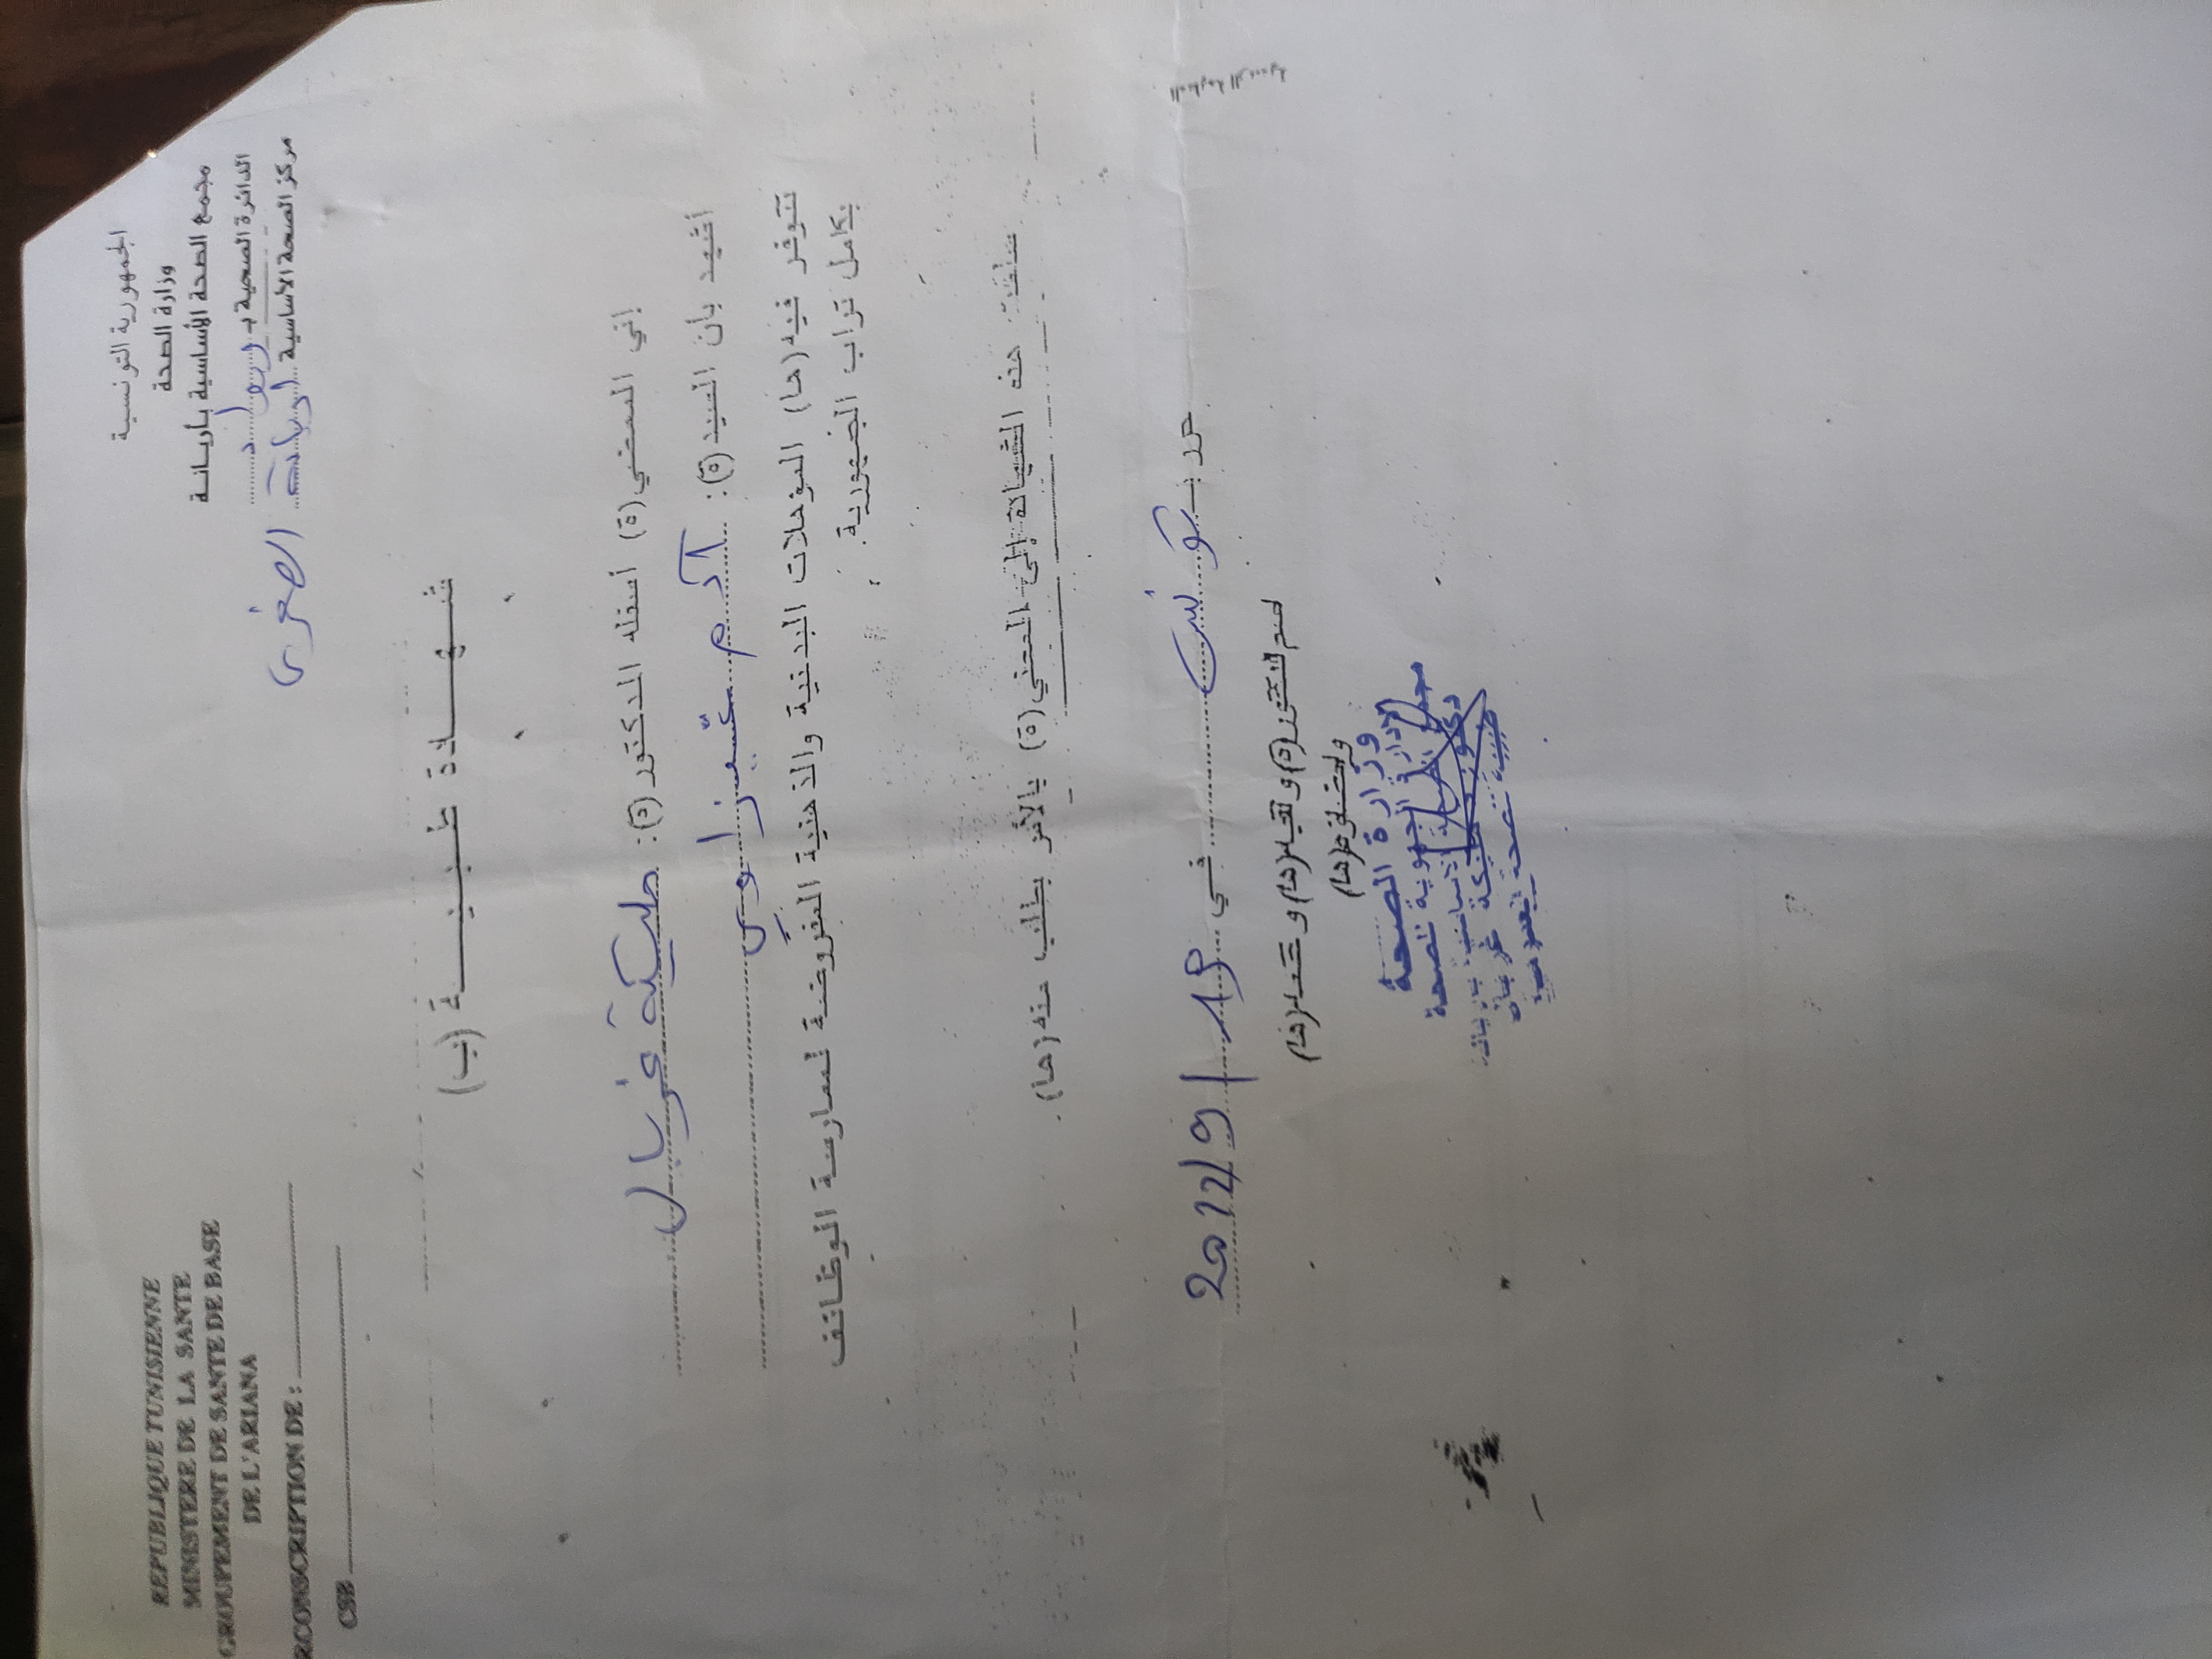 الجمهورية التونسية
وزارة الصحة
مجمع الصحة الأساسية بأريانة
الدائرة الصحية بـ رواد
مركز الصحة الأساسية أريانة الصغرى
REPUBLIQUE TUNISIENNE
MINISTERE DE LA SANTE
GROUPEMENT DE SANTE DE BASE
DE L'ARIANA
RCONSCRIPTION DE :
CSB
شهادة طبية (ب)
إني الممضي (ة) أسفله الدكتور (ة): مليكة غربال
أشهد بأن السيد (ة): آدم عيزاوي
تتوفر فيه (ها) المؤهلات البدنية والذهنية المفروضة لممارسة الوظائف
بكامل تراب الجمهورية.
سلمت هذه الشهادة إلى المعني (ة) بالأمر بطلب منه (ها).
حرر بـ تونس في 19/9/2022
ختم الدكتور (ة) و
وزارة الصحة
الإدارة الجهوية للصحة
مجمع الصحة الأساسية بأريانة
دكتورة مليكة غربال